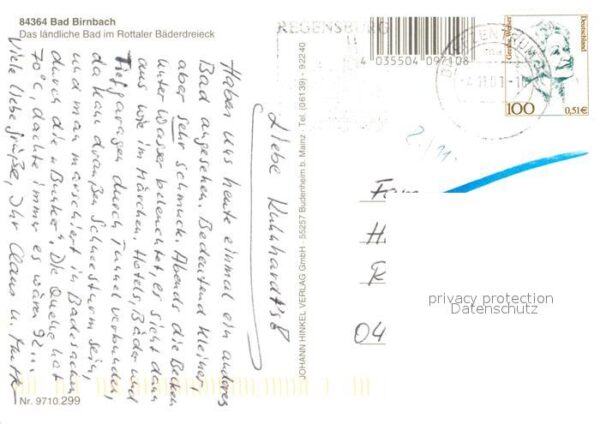 84364 Bad Birnbach
Das ländliche Bad im Rottaler Bäderdreieck
Liebe Kuhhardt's!
Haben uns heute einmal ein anderes
Bad angesehen. Bedeutend kleiner,
aber sehr schmuck. Abends die Becken
unter Wasser beleuchtet, es sieht dann
aus wie im Märchen. Hotels, Bäder und
Tiefgaragen durch Tunnel verbunden,
da kann draußen Schneesturm sein,
und man marschiert in Badesachen
durch die "Bunker". Die Quelle hat
70°C, dachte immer es wären 92...
Viele liebe Grüße, Ihr Claus u. Ruth
Nr. 9710.299
JOHANN HINKEL VERLAG GmbH · 55257 Budenheim b. Mainz · Tel. (06139) · 92240
REGENSBURG
4 035504 097108
BRIEFZENTRUM
Deutschland
100
0,51€
2/11.
Fam
H
R
04
privacy protection
Datenschutz